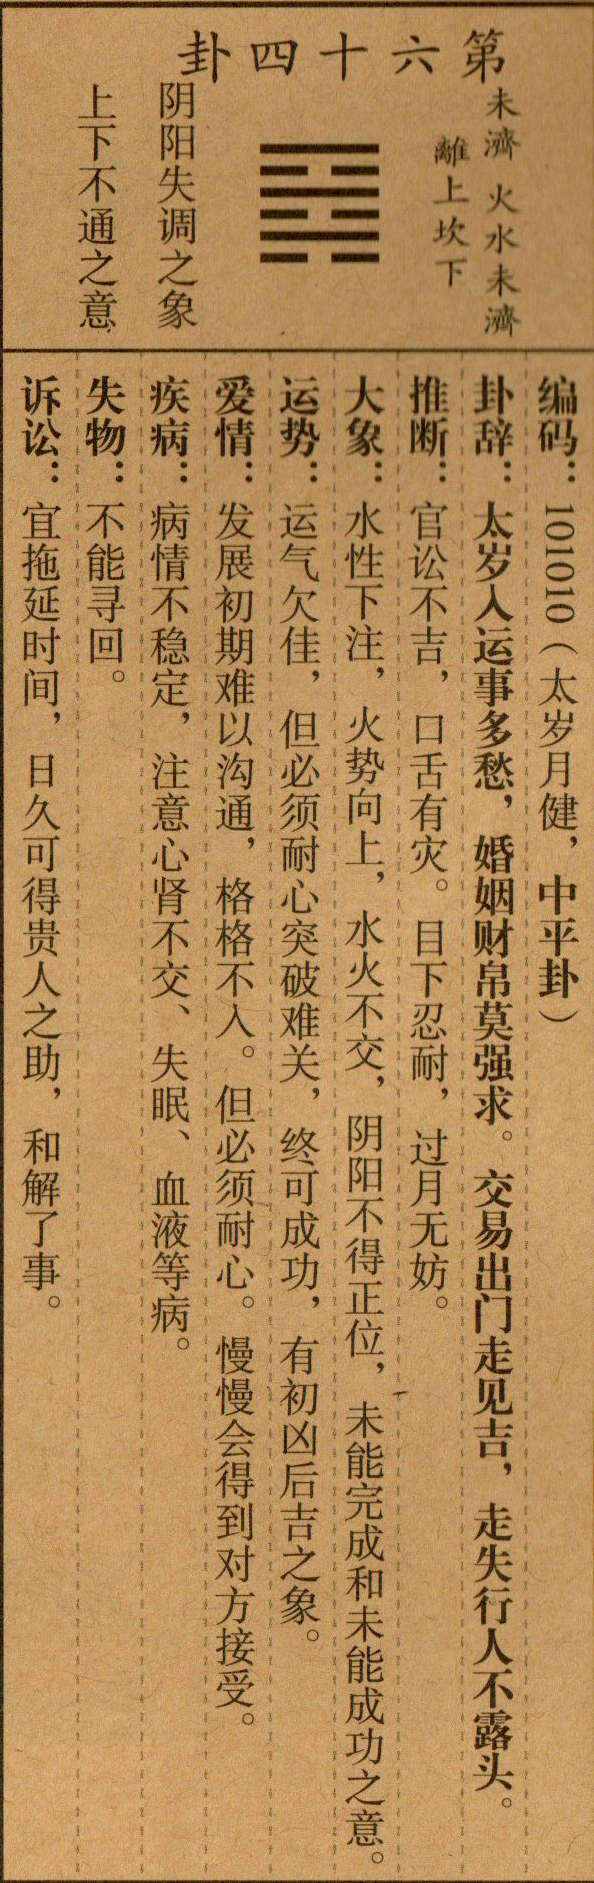 第六十四卦
未濟 火水未濟
離上坎下
阴阳失调之象
上下不通之意
编码：101010（太岁月健，中平卦）
卦辞：太岁入运事多愁，婚姻财帛莫强求。交易出门走见吉，走失行人不露头。
推断：官讼不吉，口舌有灾。目下忍耐，过月无妨。
大象：水性下注，火势向上，水火不交，阴阳不得正位，未能完成和未能成功之意。
运势：运气欠佳，但必须耐心突破难关，终可成功，有初凶后吉之象。
爱情：发展初期难以沟通，格格不入。但必须耐心。慢慢会得到对方接受。
疾病：病情不稳定，注意心肾不交、失眠、血液等病。
失物：不能寻回。
诉讼：宜拖延时间，日久可得贵人之助，和解了事。